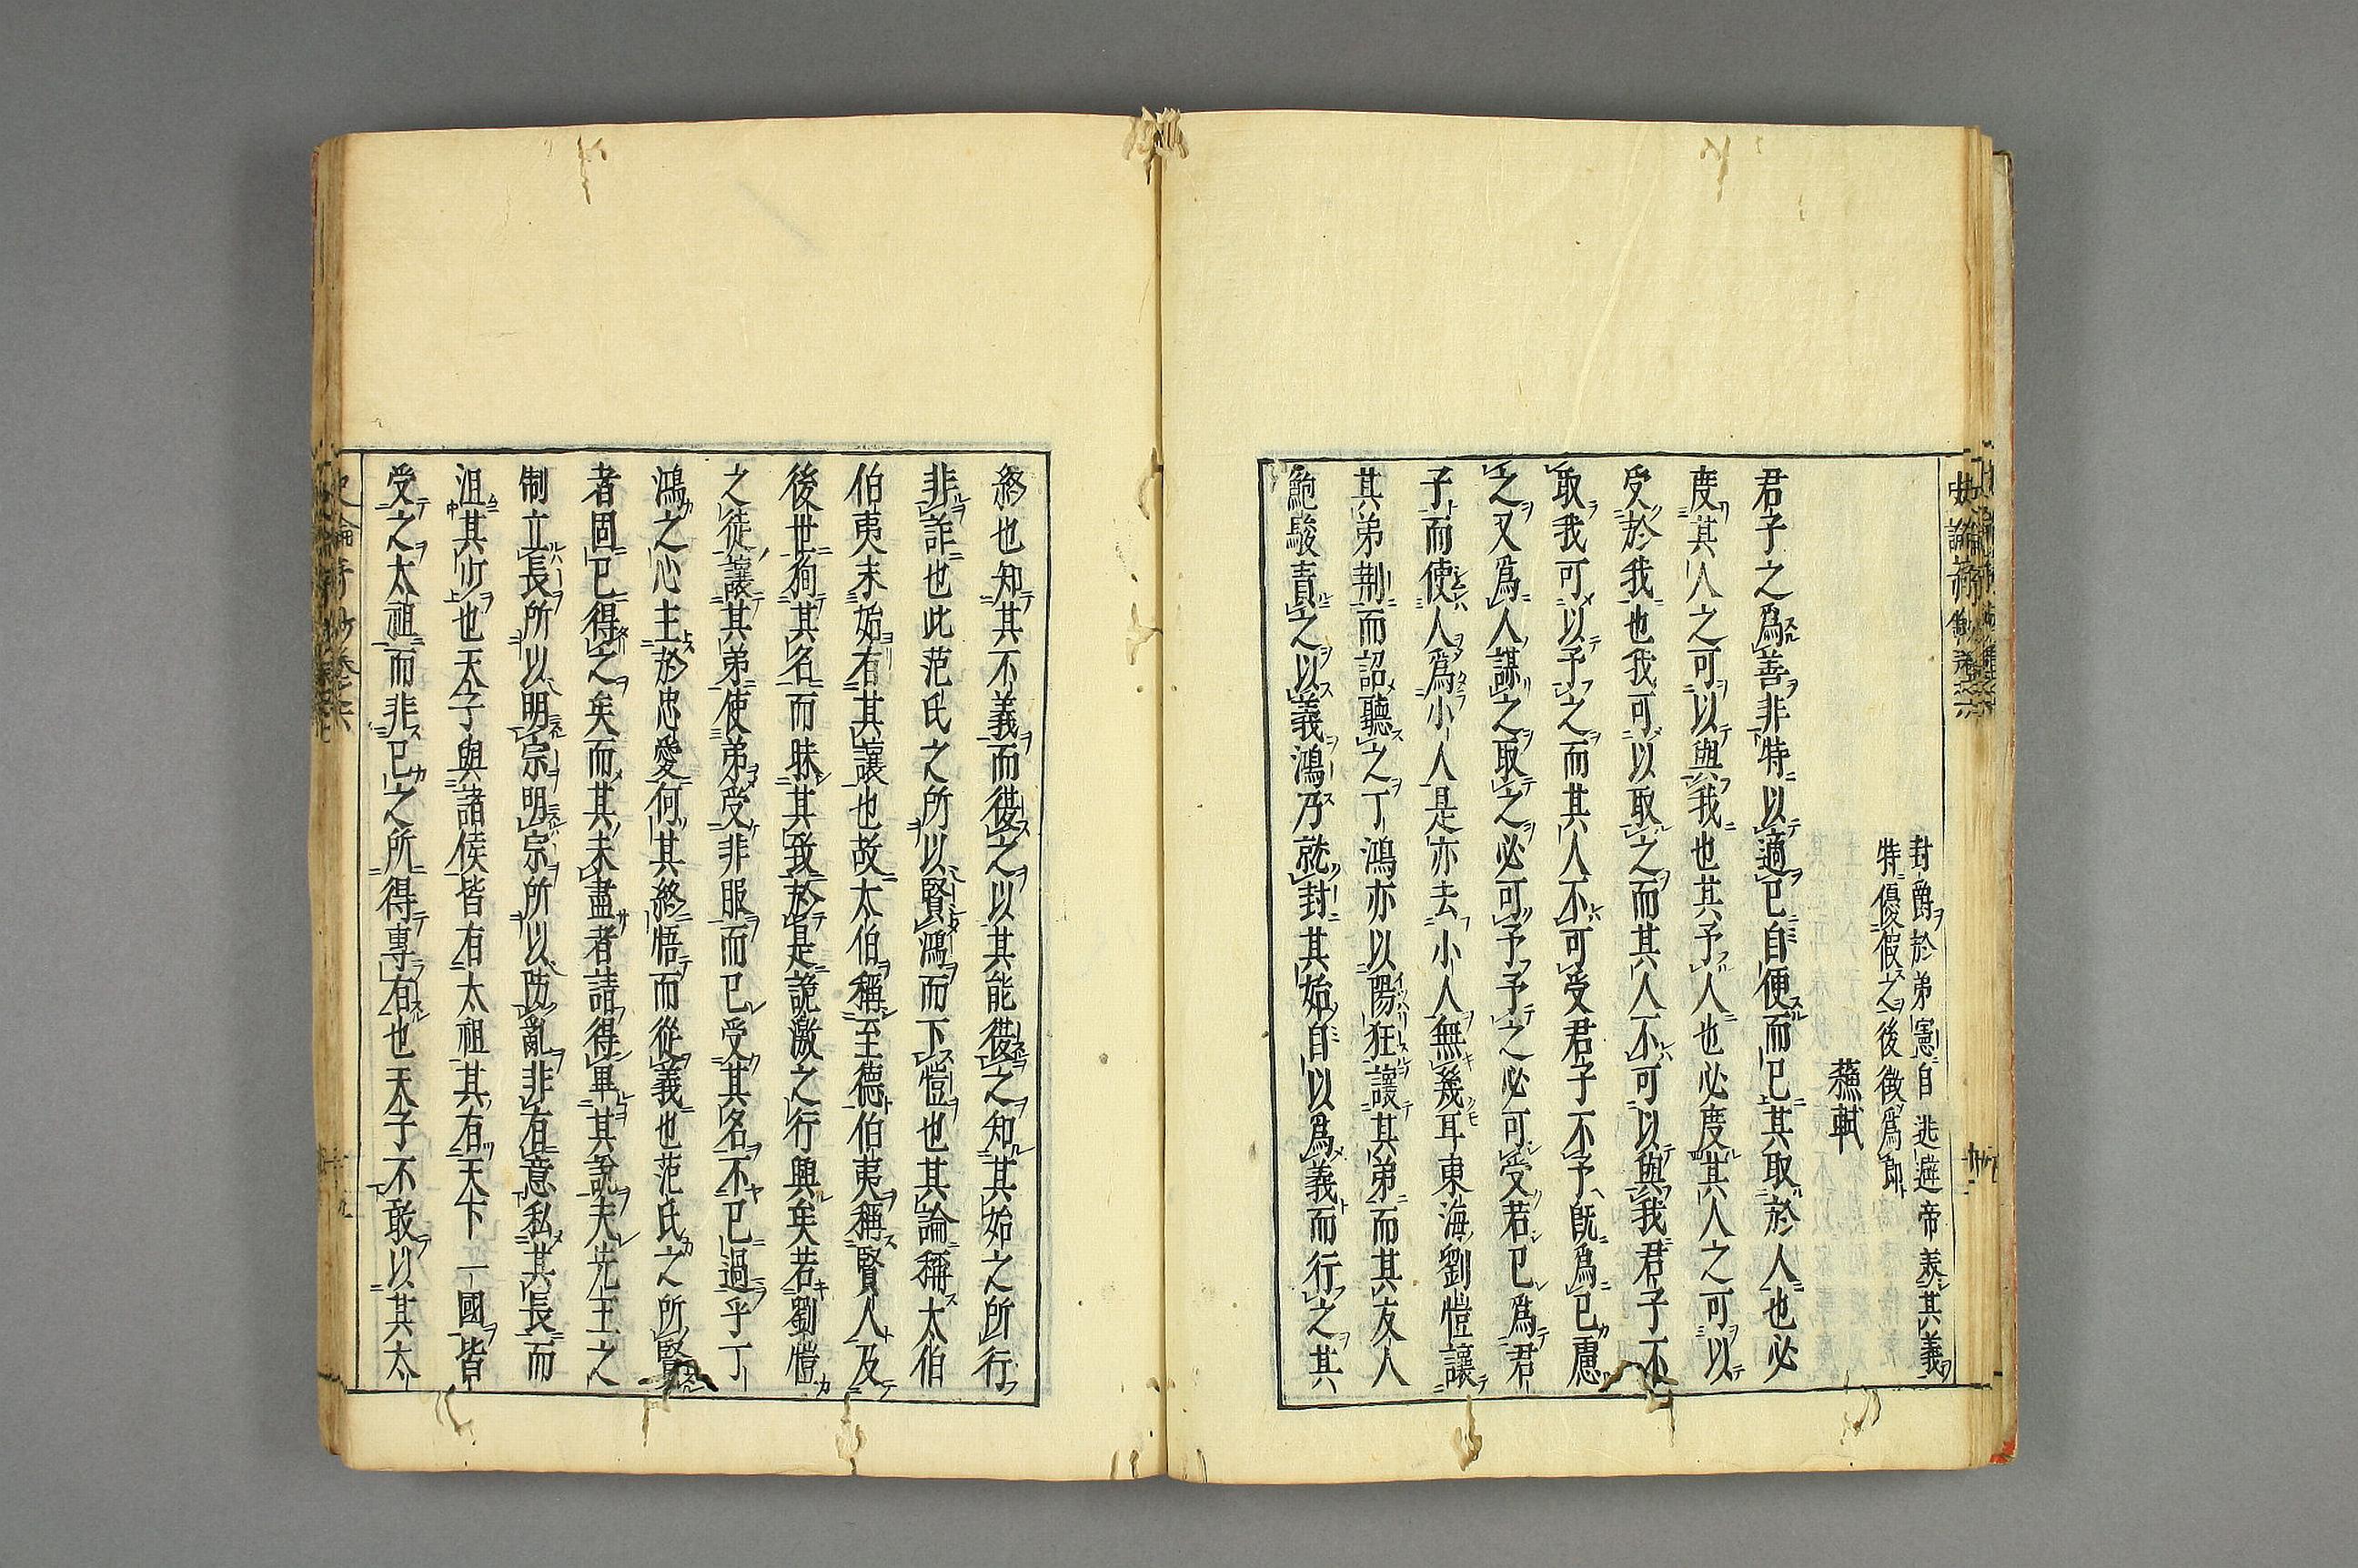 封爵於弟憲自逃避帝義其義
特優假之後徵爲郎
蘇軾
君子之爲善非特以適已自便而已其取於人也必
度其人之可以與我也其予人也必度其人之可以
受於我也我可以取之而其人不可以與我君子不
取我可以予之而其人不可受君子不予既爲已慮
之又爲人謀之取之必可予予之必可受若已爲君
子而使人爲小人是亦去小人無幾耳東海劉愷讓
其弟荆而詔聽之丁鴻亦以陽狂讓其弟而其友人
鮑駿責之以義鴻乃就封其始自以爲義而行之其
終也知其不義而復之以其能復之知其始之所行
非詐也此范氏之所以賢鴻而下愷也其論稱太伯
伯夷未始有其讓也故太伯稱至德伯夷稱賢人及
後世徇其名而昧其致於是詭激之行興矣若劉愷
之徒讓其弟使弟受非服而已受其名不已過乎丁
鴻之心主於忠愛何其終悟而從義也范氏之所賢
者固已得之矣而其未盡者請得畢其說夫先王之
制立長所以明宗明宗所以防亂非有意私其長而
沮其少也天子與諸侯皆有太祖其有天下一國皆
受之太祖而非已之所得專有也天子不敢以其太